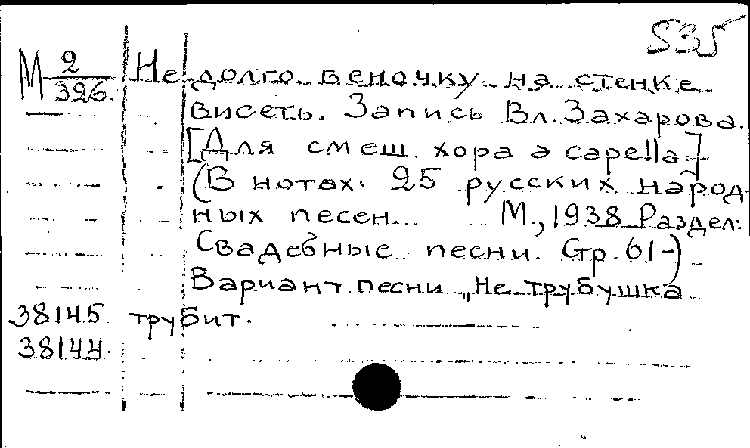 S35
М 2/326. Не долго веночку на стенке
висеть. Запись Вл. Захарова.
[Для смеш. хора a capella.]
(В нотах: 25 русских народ-
ных песен... М., 1938 Раздел:
Свадебные песни. Стр. 61-)
Вариант песни „Не трубушка
38145 трубит.
38144.